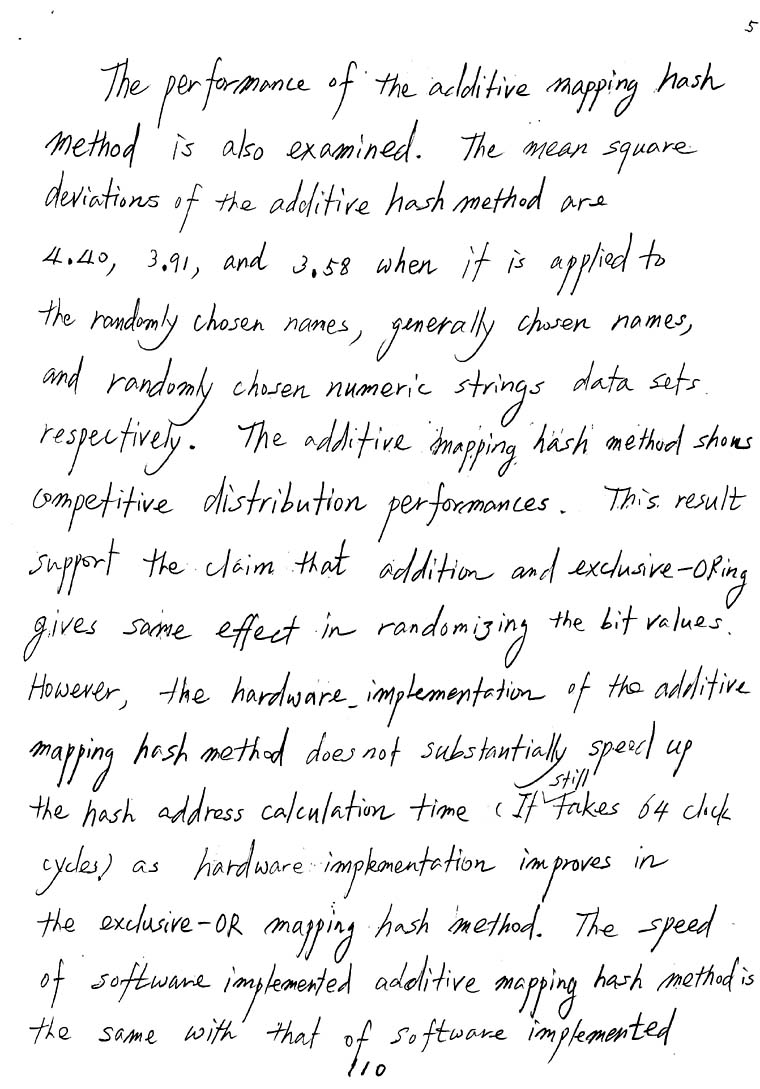 5
The performance of the additive mapping hash
method is also examined. The mean square
deviations of the additive hash method are
4.40, 3.91, and 3.58 when it is applied to
the randomly chosen names, generally chosen names,
and randomly chosen numeric strings data sets
respectively. The additive mapping hash method shows
competitive distribution performances. This result
support the claim that addition and exclusive-ORing
gives same effect in randomizing the bit values.
However, the hardware implementation of the additive
mapping hash method does not substantially speed up
still
the hash address calculation time (It takes 64 clock
cycles) as hardware implementation improves in
the exclusive-OR mapping hash method. The speed
of software implemented additive mapping hash method is
the same with that of software implemented
110